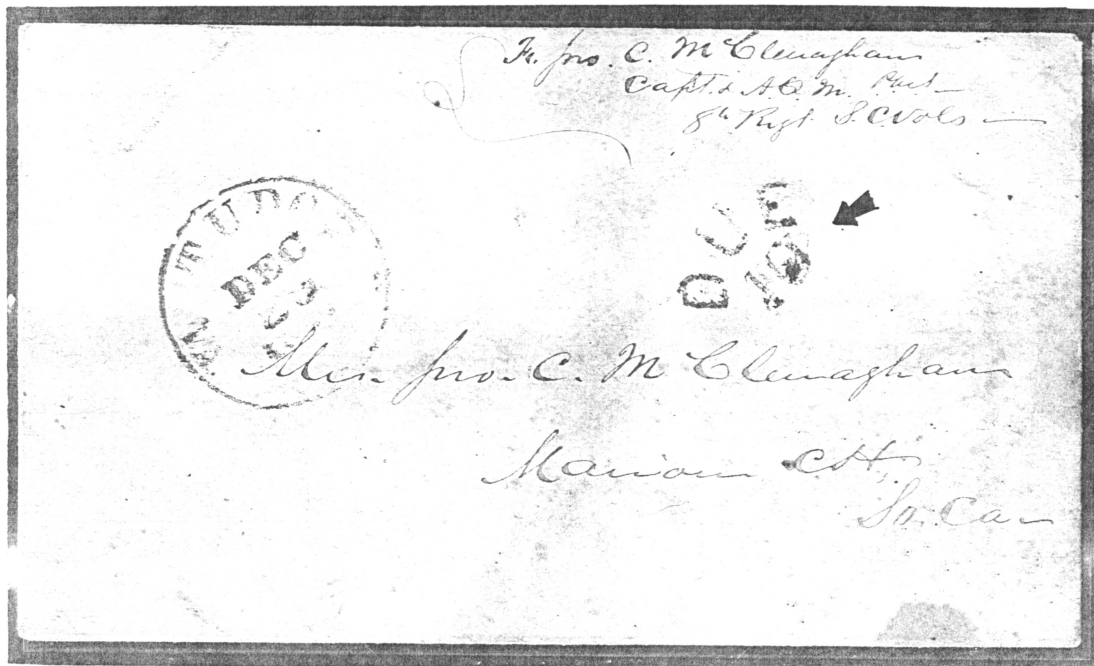 Fr. Jno. C. McClenaghan
Capt. & A.Q.M.
8th Regt S.C. Vols
TUDO
DEC
DUE
10
Mrs. Jno. C. McClenaghan
Marion C.H,
So. Ca